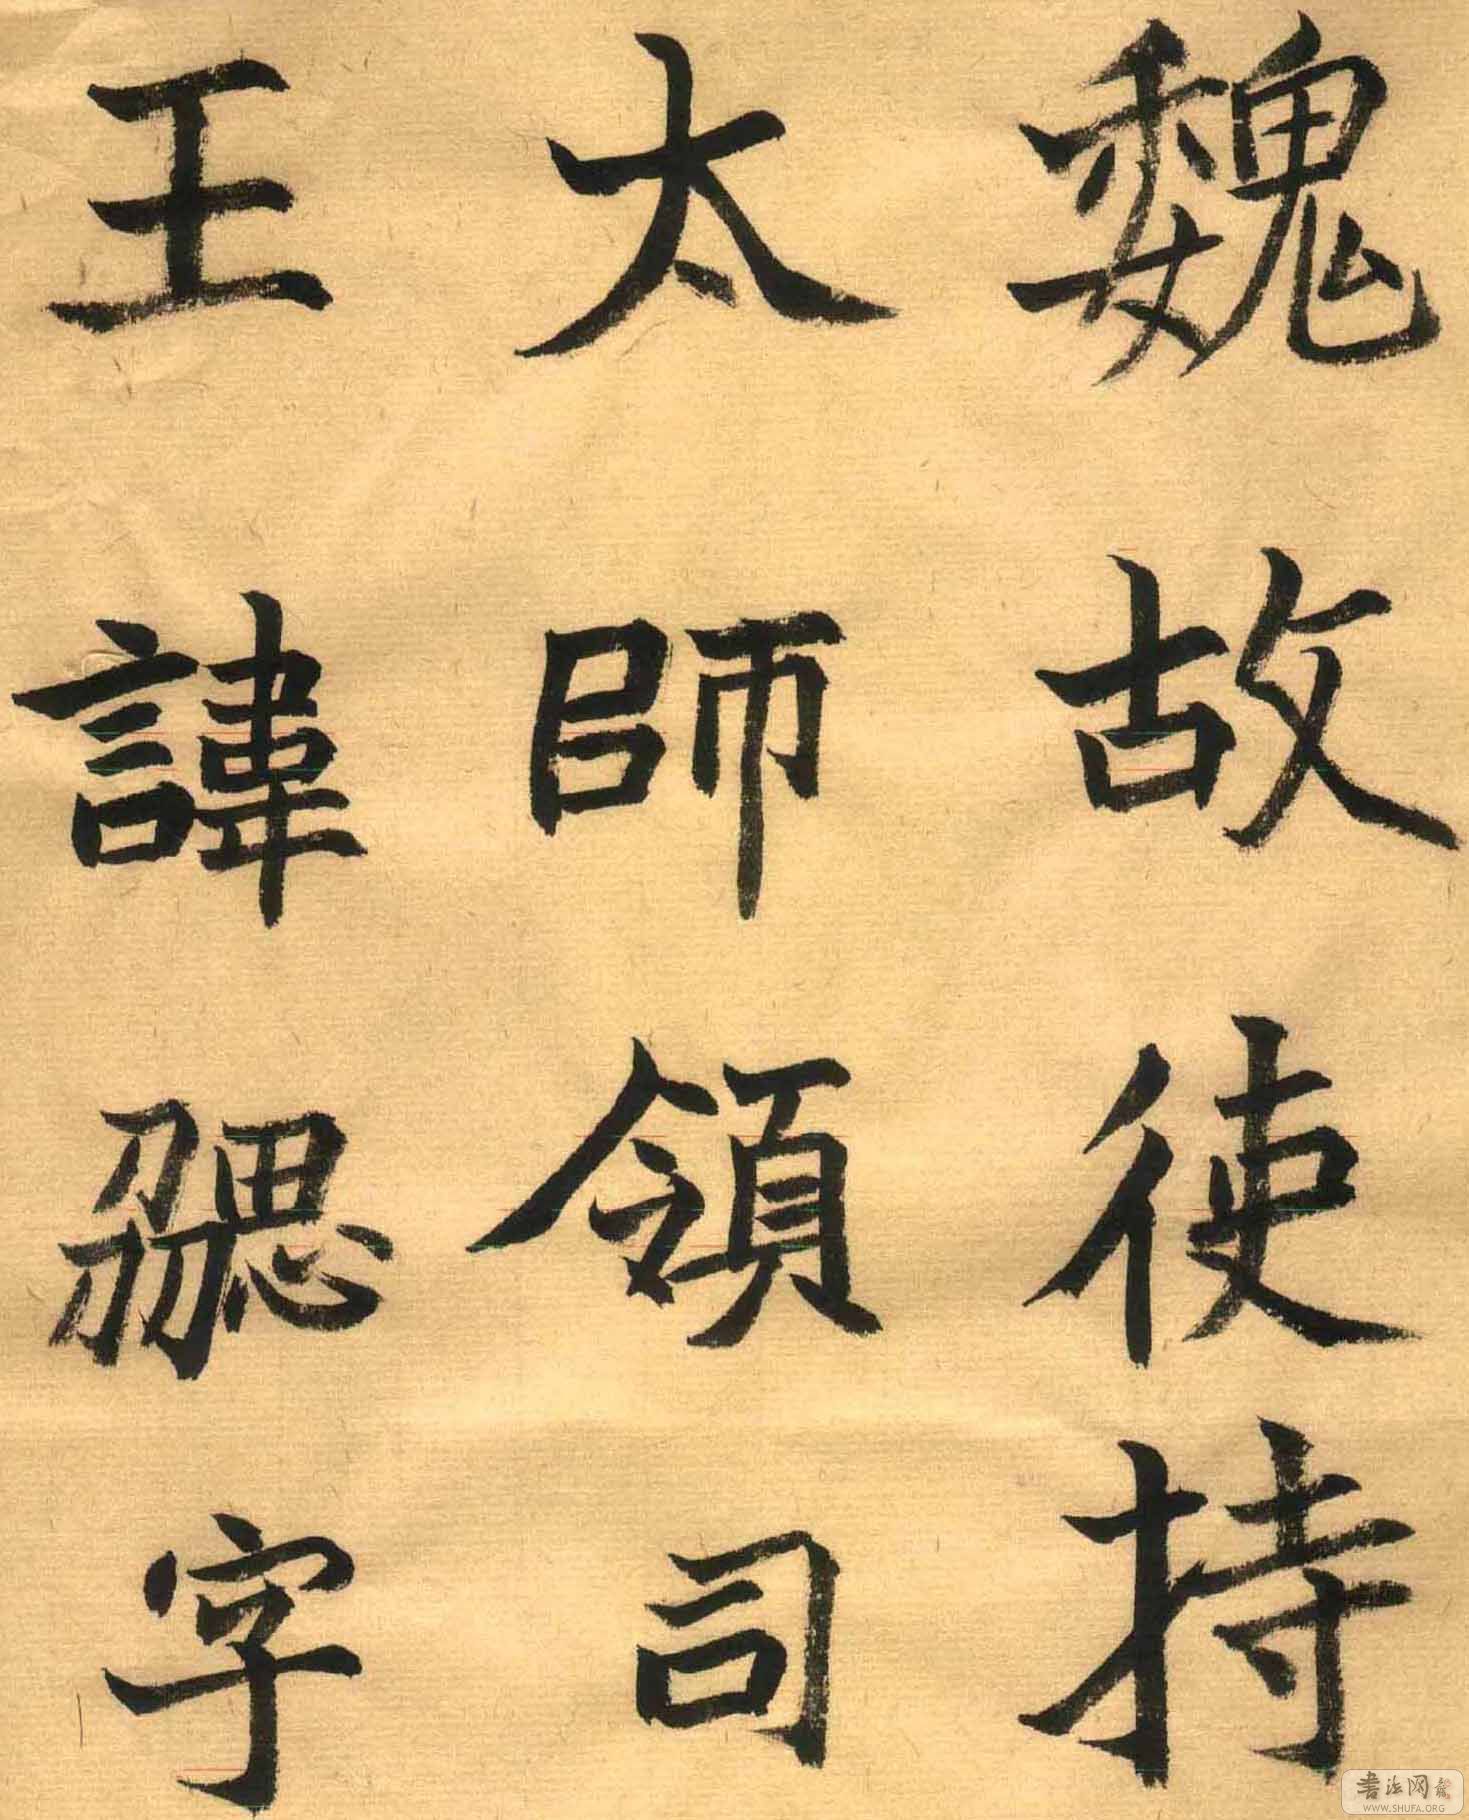 魏故使持
太師領司
王諱勰字
書法网
WWW.SHUFA.ORG